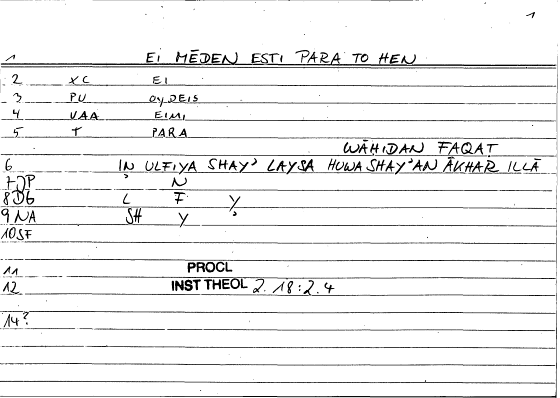 1
1 EI MĒDEN ESTI PARA TO HEN
2 XC EI
3 PU OYDEIS
4 VAA EIMI
5 T PARA
WĀHIDAN FAQAT
6 IN ULFIYA SHAY' LAYSA HUWA SHAY'AN ĀKHAR ILLĀ
7 DP ' N
8 DG L F Y
9 NA SH Y '
10 SF
11 PROCL
12 INST THEOL 2. 18:2.4
14?